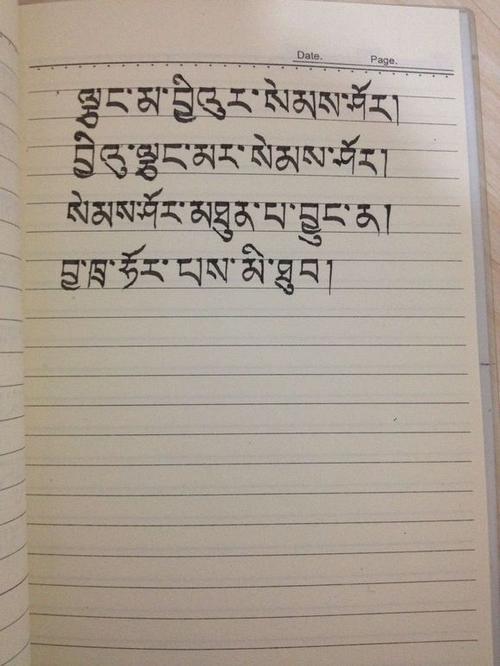 Date. Page.
ལྕང་མ་བྱིའུར་སེམས་ཤོར།
བྱིའུ་ལྕང་མར་སེམས་ཤོར།
སེམས་ཤོར་མཐུན་པ་བྱུང་ན།
བྱ་ཁྲ་ཧོར་པས་མི་ཐུབ།